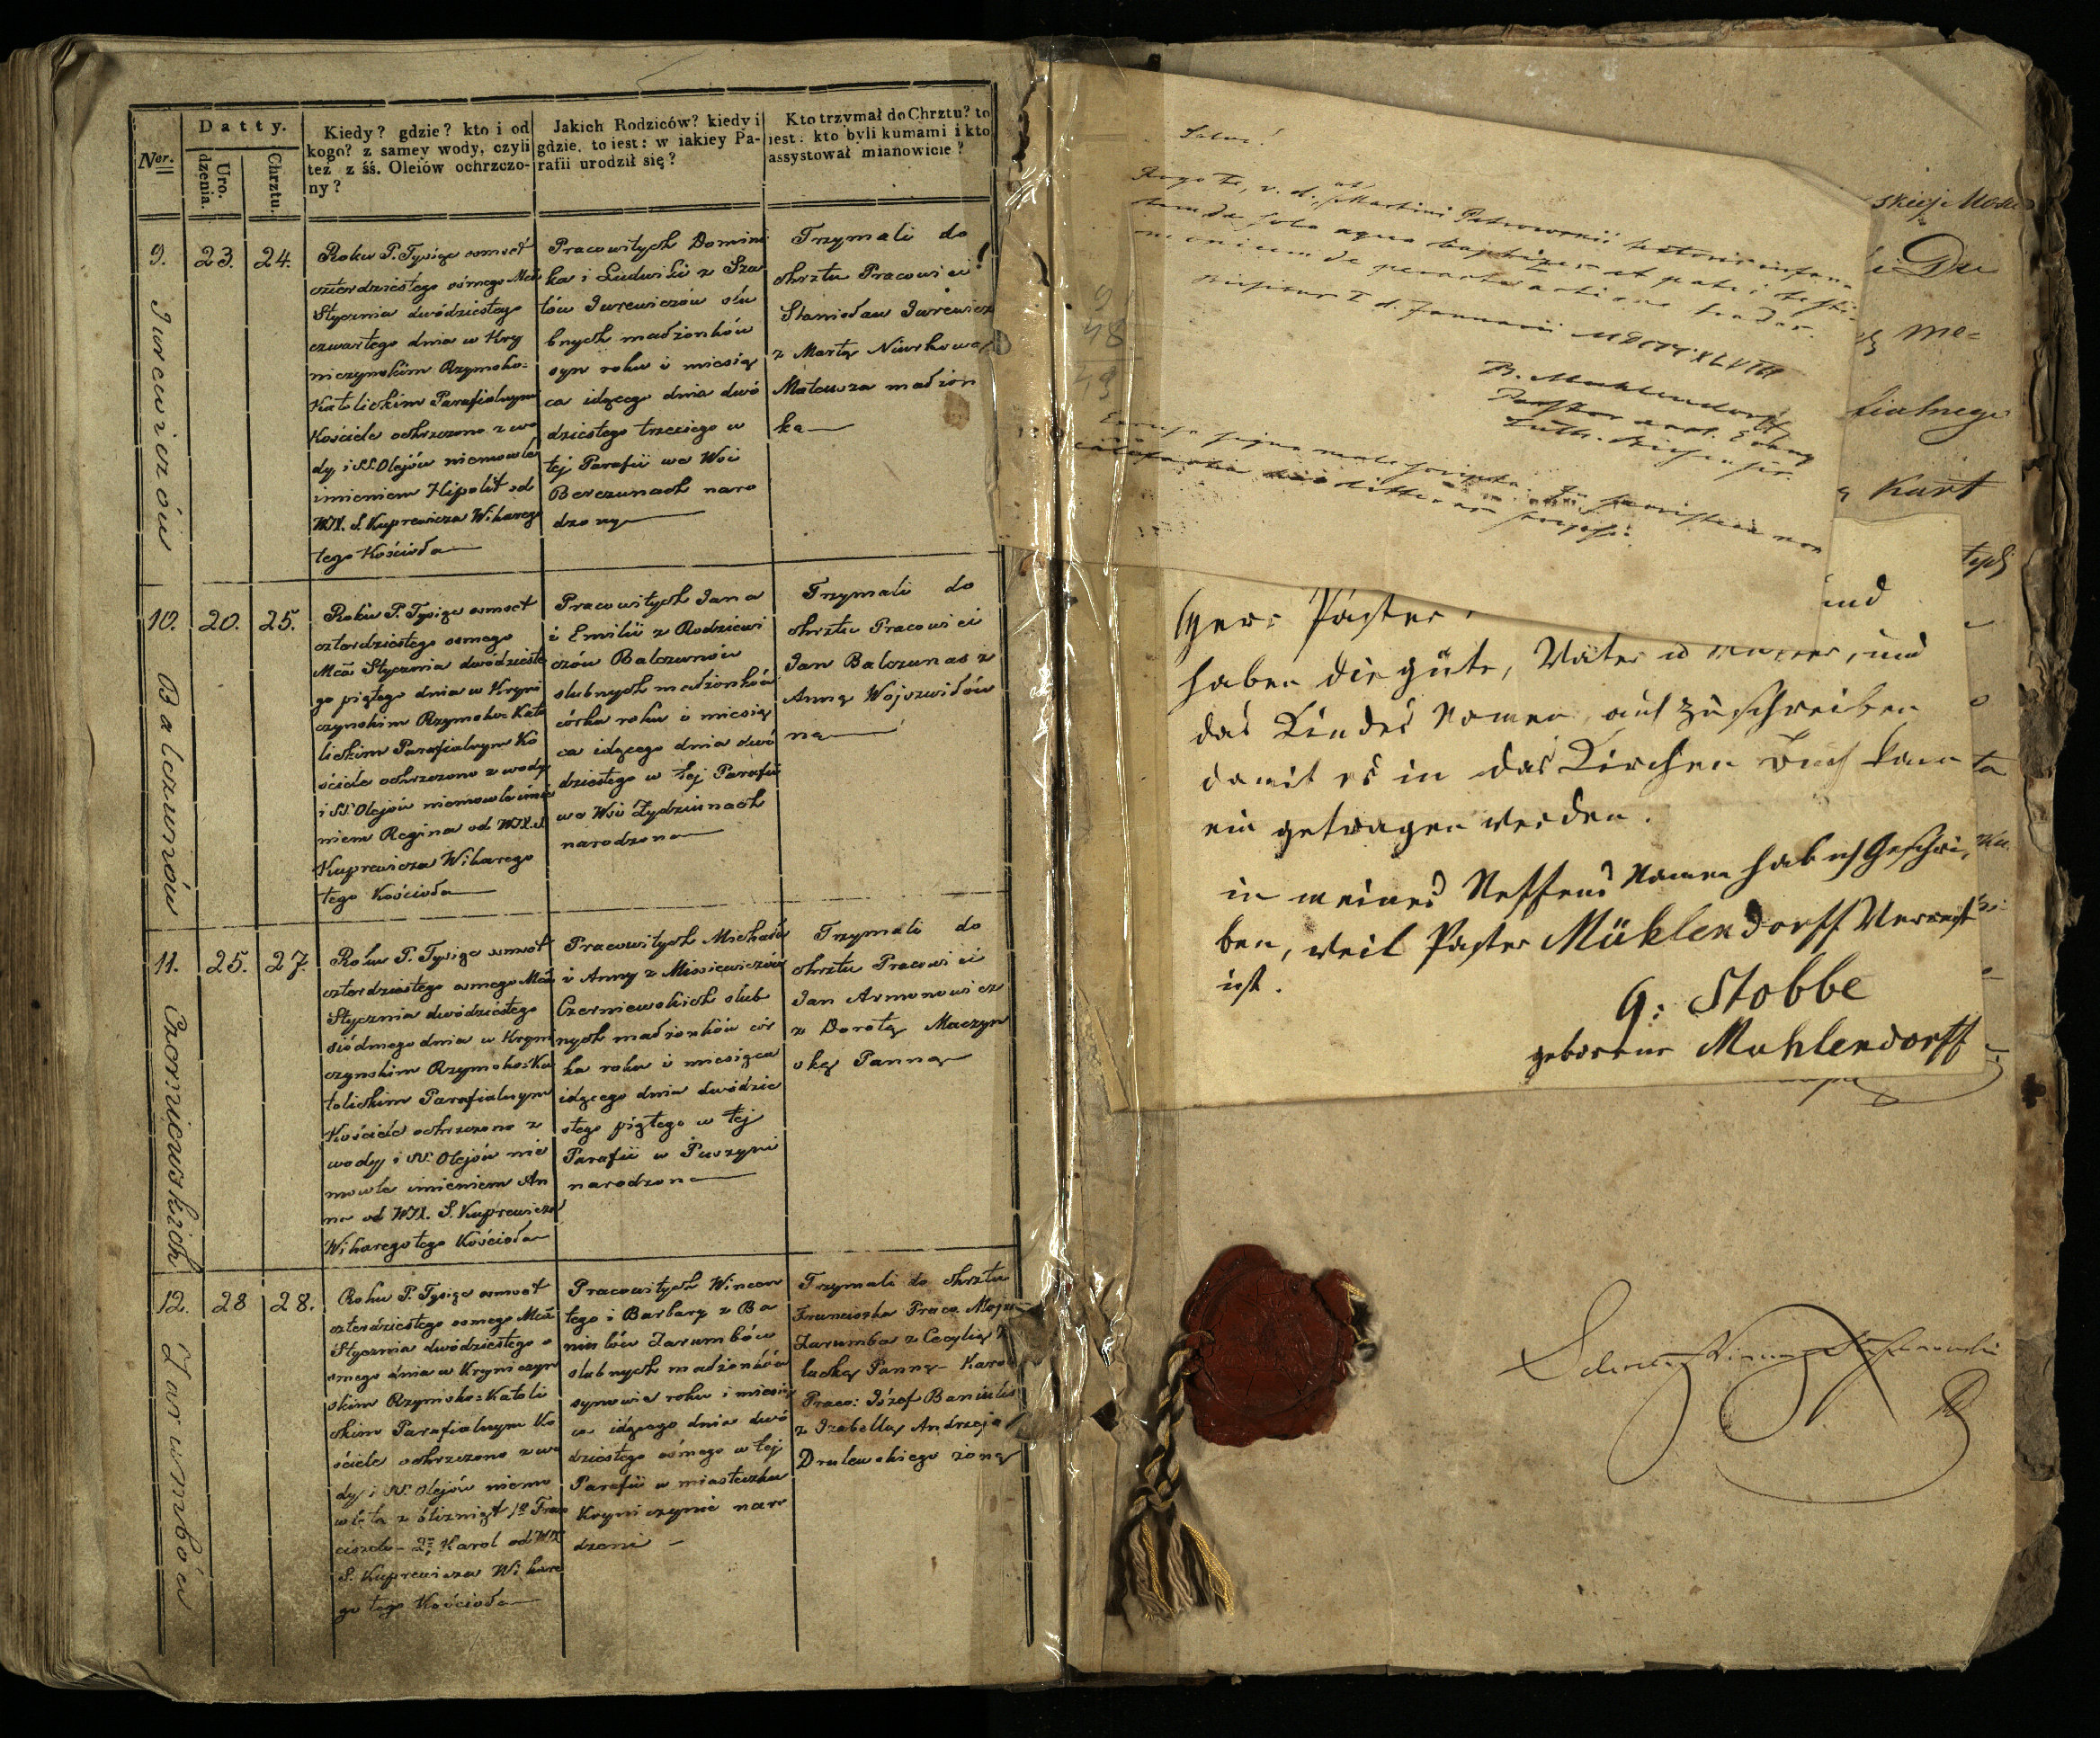 Nor.
Datty.
Uro.
dzenia.
Chrztu.
Kiedy? gdzie? kto i od
kogo? z samey wody, czyli
też z śś. Oleiów ochrzczo-
ny?
Jakich Rodziców? kiedy i
gdzie, to iest: w iakiey Pa-
rafii urodził się?
Kto trzymał do Chrztu? to
iest: kto byli kumami i kto
assystował mianowicie?
9.
23.
24.
Jurewiczów
Roku P. Tysiąc osmset
czterdziestego ósmego Mca
Stycznia dwódziestego
czwartego dnia w Kry
niczynskim Rzymsko=
Katolickim Parafialnym
Kościele ochrzczono z wo
dy i SS. Olejów niemowle
imieniem Hipolit od
WJX. S. Kuprewicza Wikarego
tego Kościoła
Pracowitych Domini
ka i Ludwiki z Sza
tów Jurewiczów slu
bnych małżonków
syn roku i miesią
ca idącego dnia dwó
dziestego trzeciego w
tej Parafii we Wsi
Berczunach naro
dzony
Trzymali do
chrztu Pracowici
Stanisław Jurewicz
z Martą
Mateusza małżon
ką
10.
20.
25.
Balczunów
Roku P. Tysiąc osmset
czterdziestego osmego
Mca Stycznia dwódzieste
go piątego dnia w Kryni
czynskim Rzymsko=Kato
lickim Parafialnym Ko
ściele ochrzczono z wody
i SS. Olejów niemowle imie
niem Regina od WJX. S.
Kuprewicza Wikarego
tego Kościoła
Pracowitych Jana
i Emilii z Rodziewi
czów Balczunów
slubnych małżonków
córka roku i miesią
ca idącego dnia dwó
dziestego w tej Parafii
we Wsi Żydziunach
narodzona
Trzymali do
chrztu Pracowici
Jan Balczunas z
Anną Wojszwiłów
ną
11.
25.
27.
Czerniewskich
Roku P. Tysiąc osmset
czterdziestego osmego Mca
Stycznia dwódziestego
siódmego dnia w Kryni
czynskim Rzymsko=Ka
tolickim Parafialnym
Kościele ochrzczono z
wody i SS. Olejów nie
mowle imieniem An
na od WJX. S. Kuprewicza
Wikarego tego Kościoła
Pracowitych Michała
i Anny z Misiewiczów
Czerniewskich slub
nych małżonków cór
ka roku i miesiąca
idącego dnia dwódzie
stego piątego w tej
Parafii w Puszyni
narodzona
Trzymali do
chrztu Pracowici
Jan Armonowicz
z Dorotą Maczyn
ską Panną
12.
28
28.
Zarumbów
Roku P. Tysiąc osmset
czterdziestego osmego Mca
Stycznia dwódziestego o
smego dnia w Kryniczyn
skim Rzymsko=Katoli
ckim Parafialnym Ko
ściele ochrzczono z wo
dy i SS. Olejów niemo
wlęta z bliźniąt 1º Fran
ciszek - 2º Karol od WJX
S. Kuprewicza Wikare
go tego Kościoła
Pracowitych Wincen
tego i Barbary z Ba
niulów Zarumbów
slubnych małżonków
synowie roku i miesią
ca idącego dnia dwó
dziestego ósmego w tej
Parafii w miasteczku
Kryniczynie naro
dzeni
Trzymali do chrztu
Franciszka Praco.
Zarumbas z Cecylią
Panną - Karo
Praco: Józef Baniulis
z Izabellą Andrzeja
Drulewskiego żoną
Salus!
Rogo Te, v. d., ut Martini
sola aqua baptizes et patri testi-
monium de
d. Januarii MDCCCXLVIII
B. Muhlendorff
Pastor
Luth.
male scripta.
Herr Paster
und
haben die güte, Vater u Mutter, und
das Kindes Namen, auf zu schreiben
damit es in das Kirchen Buch kann
ein getragen werden.
in meines Neffens Namen hab ich Geschri,
ben, weil Paster Mühlendorff Verreist
ist.
G: Stobbe
geborene Muhlendorff
skiej
Du
me=
fialnego
Kart
ta